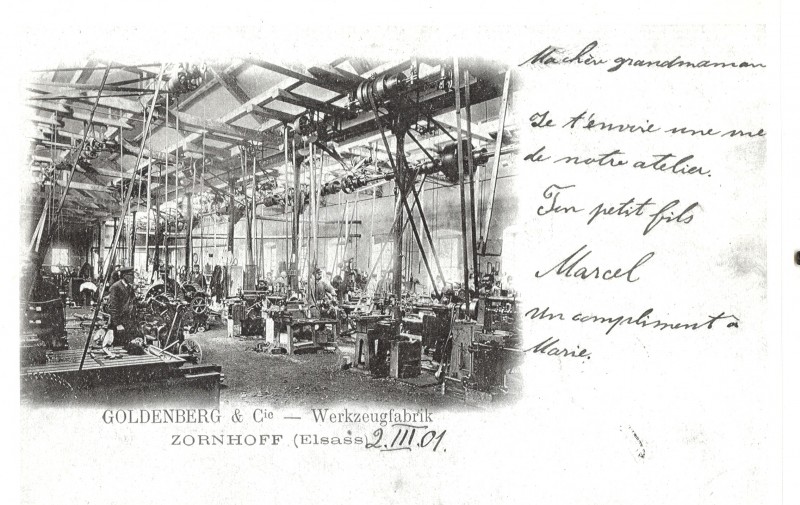 Ma chère grandmaman
Je t'envoie une vue
de notre atelier.
Ton petit fils
Marcel
Un compliment à
Marie.
GOLDENBERG & Cie — Werkzeugfabrik
ZORNHOFF (Elsass) 2.III.01.